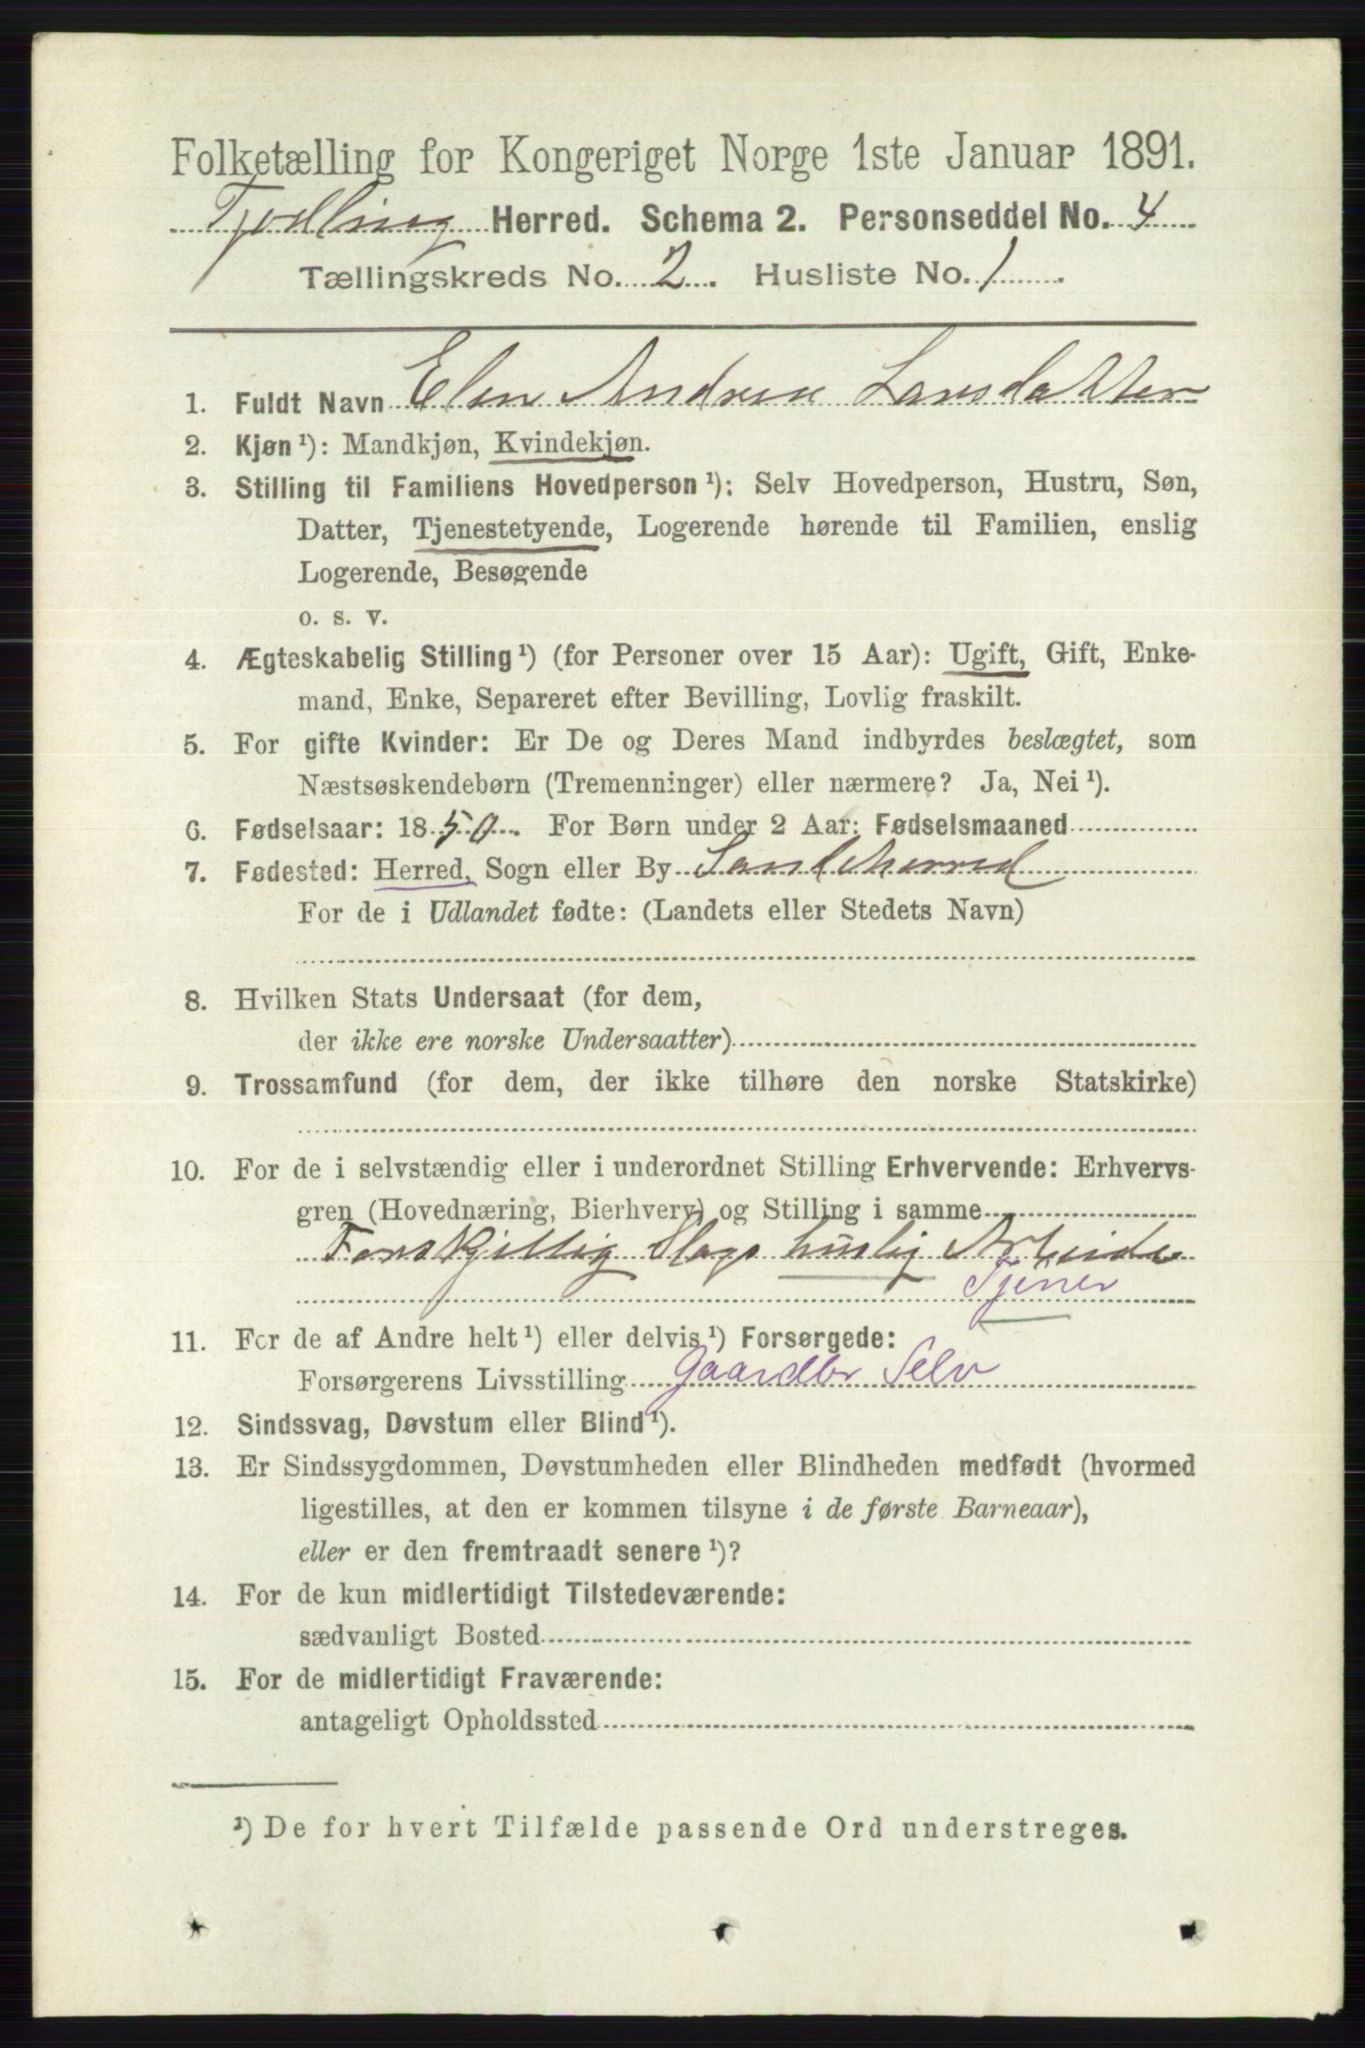 Folketælling for Kongeriget Norge 1ste Januar 1891.
Tjødling Herred. Schema 2. Personseddel No. 4
Tællingskreds No. 2. Husliste No. 1.
1. Fuldt Navn Elen Andrea Larsdatter
2. Kjøn ¹): Mandkjøn, Kvindekjøn.
3. Stilling til Familiens Hovedperson ¹): Selv Hovedperson, Hustru, Søn,
Datter, Tjenestetyende, Logerende hørende til Familien, enslig
Logerende, Besøgende
o. s. v.
4. Ægteskabelig Stilling ¹) (for Personer over 15 Aar): Ugift, Gift, Enke-
mand, Enke, Separeret efter Bevilling, Lovlig fraskilt.
5. For gifte Kvinder: Er De og Deres Mand indbyrdes beslægtet, som
Næstsøskendebørn (Tremenninger) eller nærmere? Ja, Nei ¹).
6. Fødselsaar: 1850. For Børn under 2 Aar: Fødselsmaaned
7. Fødested: Herred, Sogn eller By Sandeherred
For de i Udlandet fødte: (Landets eller Stedets Navn)
8. Hvilken Stats Undersaat (for dem,
der ikke ere norske Undersaatter)
9. Trossamfund (for dem, der ikke tilhøre den norske Statskirke)
10. For de i selvstændig eller i underordnet Stilling Erhvervende: Erhvervs-
gren (Hovednæring, Bierhverv) og Stilling i samme
Forskjellig Slags huslig Arbeide
Tjener
11. For de af Andre helt ¹) eller delvis ¹) Forsørgede:
Forsørgerens Livsstilling Gaardbr Selv
12. Sindssvag, Døvstum eller Blind ¹).
13. Er Sindssygdommen, Døvstumheden eller Blindheden medfødt (hvormed
ligestilles, at den er kommen tilsyne i de første Barneaar),
eller er den fremtraadt senere ¹)?
14. For de kun midlertidigt Tilstedeværende:
sædvanligt Bosted
15. For de midlertidigt Fraværende:
antageligt Opholdssted
¹) De for hvert Tilfælde passende Ord understreges.